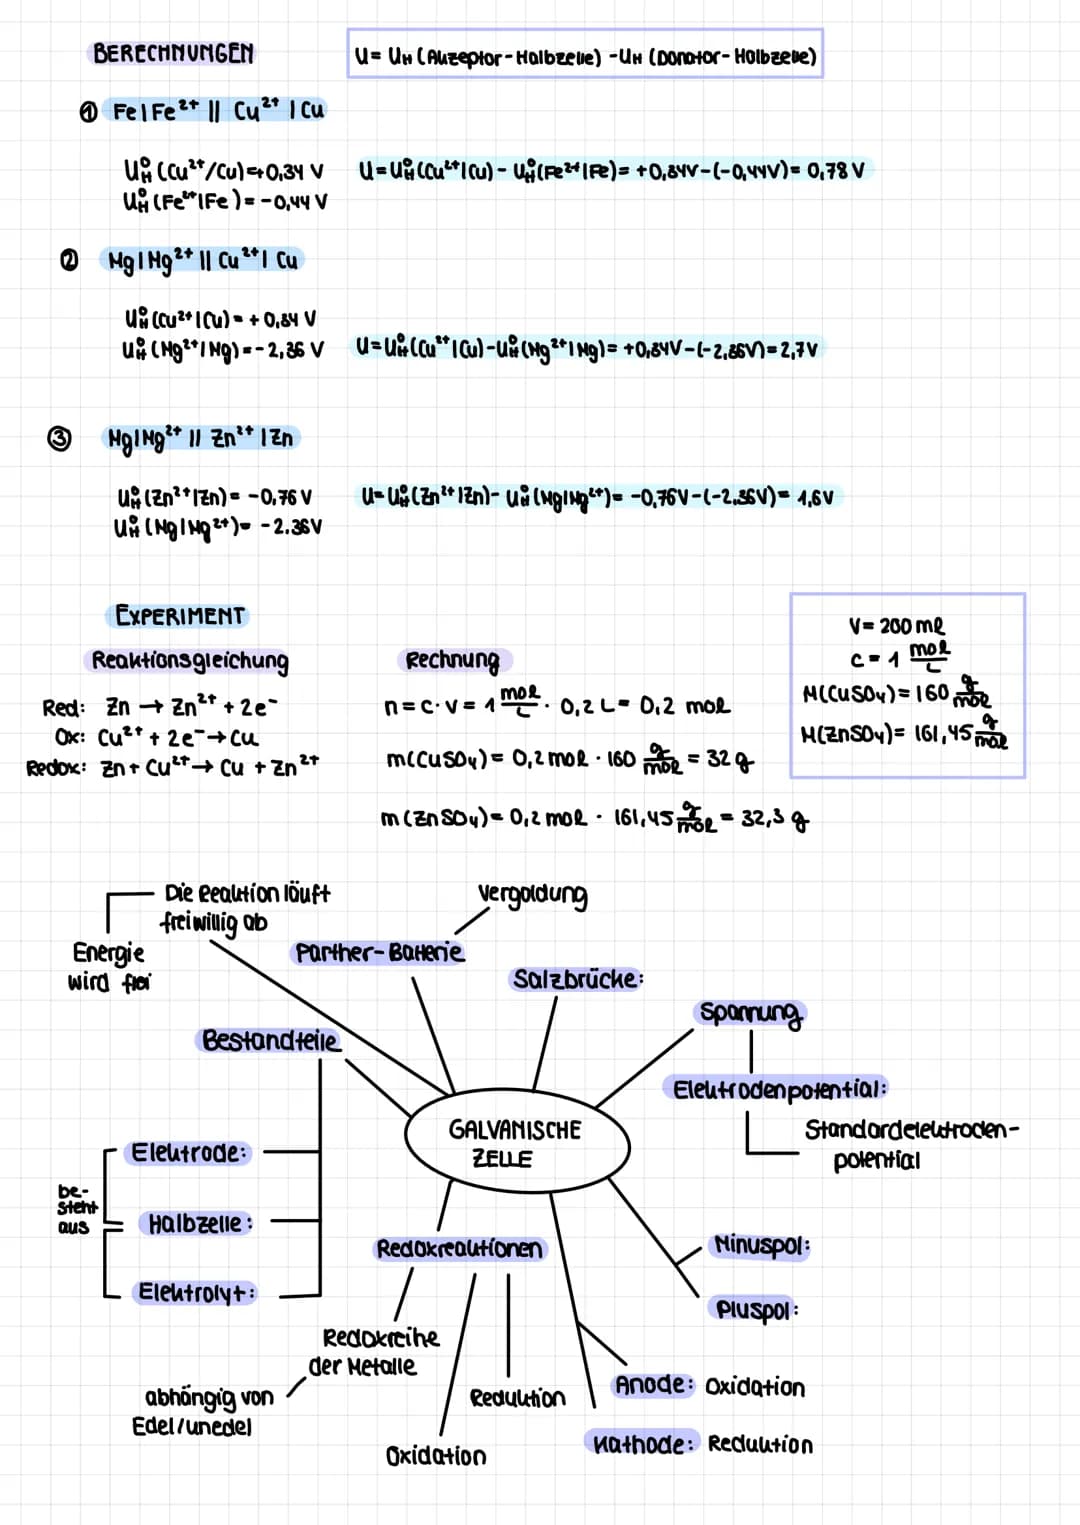 BERECHNUNGEN
U= UH (Akzeptor-Halbzelle) -UH (Donator-Halbzelle)
① Fe|Fe²⁺ || Cu²⁺ | Cu
U°H (Cu²⁺/Cu)=+0,34 V
U=U°H(Cu²⁺|Cu) - U°H(Fe²⁺|Fe)= +0,34V-(-0,44V)= 0,78 V
U°H (Fe²⁺|Fe)= -0,44 V
② Mg|Mg²⁺ || Cu²⁺| Cu
U°H (Cu²⁺|Cu)= +0,34 V
U°H (Mg²⁺|Mg)=-2,36 V
U=U°H(Cu²⁺|Cu)-U°H(Mg²⁺|Mg)= +0,34V-(-2,36V)=2,7V
③ Mg|Mg²⁺ || Zn²⁺ |Zn
U°H (Zn²⁺|Zn)= -0,76 V
U= U°H (Zn²⁺|Zn)- U°H (Mg|Mg²⁺)= -0,76V-(-2,36V)= 1,6V
U°H (Mg|Mg²⁺)= -2.36V
EXPERIMENT
Reaktionsgleichung
Red: Zn → Zn²⁺ + 2e⁻
Ox: Cu²⁺ + 2e⁻→ Cu
Redox: Zn + Cu²⁺→ Cu + Zn²⁺
Rechnung
n=c·V= 1 mol/L · 0,2 L= 0,2 mol
m(CuSO₄)= 0,2 mol · 160 g/mol = 32 g
m(ZnSO₄)= 0,2 mol · 161,45 g/mol = 32,3 g
V= 200 ml
c = 1 mol/L
M(CuSO₄)= 160 g/mol
M(ZnSO₄)= 161,45 g/mol
Die Reaktion läuft
freiwillig ab
Energie
wird frei
Vergoldung
Parther-Batterie
Salzbrücke:
Spannung
Bestandteile
Elektrodenpotential:
Standardelektroden-
potential
GALVANISCHE
ZELLE
Elektrode:
be-
steht
aus
Halbzelle:
Elektrolyt:
Redoxreaktionen
Minuspol:
Pluspol:
Redoxreihe
der Metalle
abhängig von
Edel/unedel
Reduktion
Oxidation
Anode: Oxidation
Kathode: Reduktion